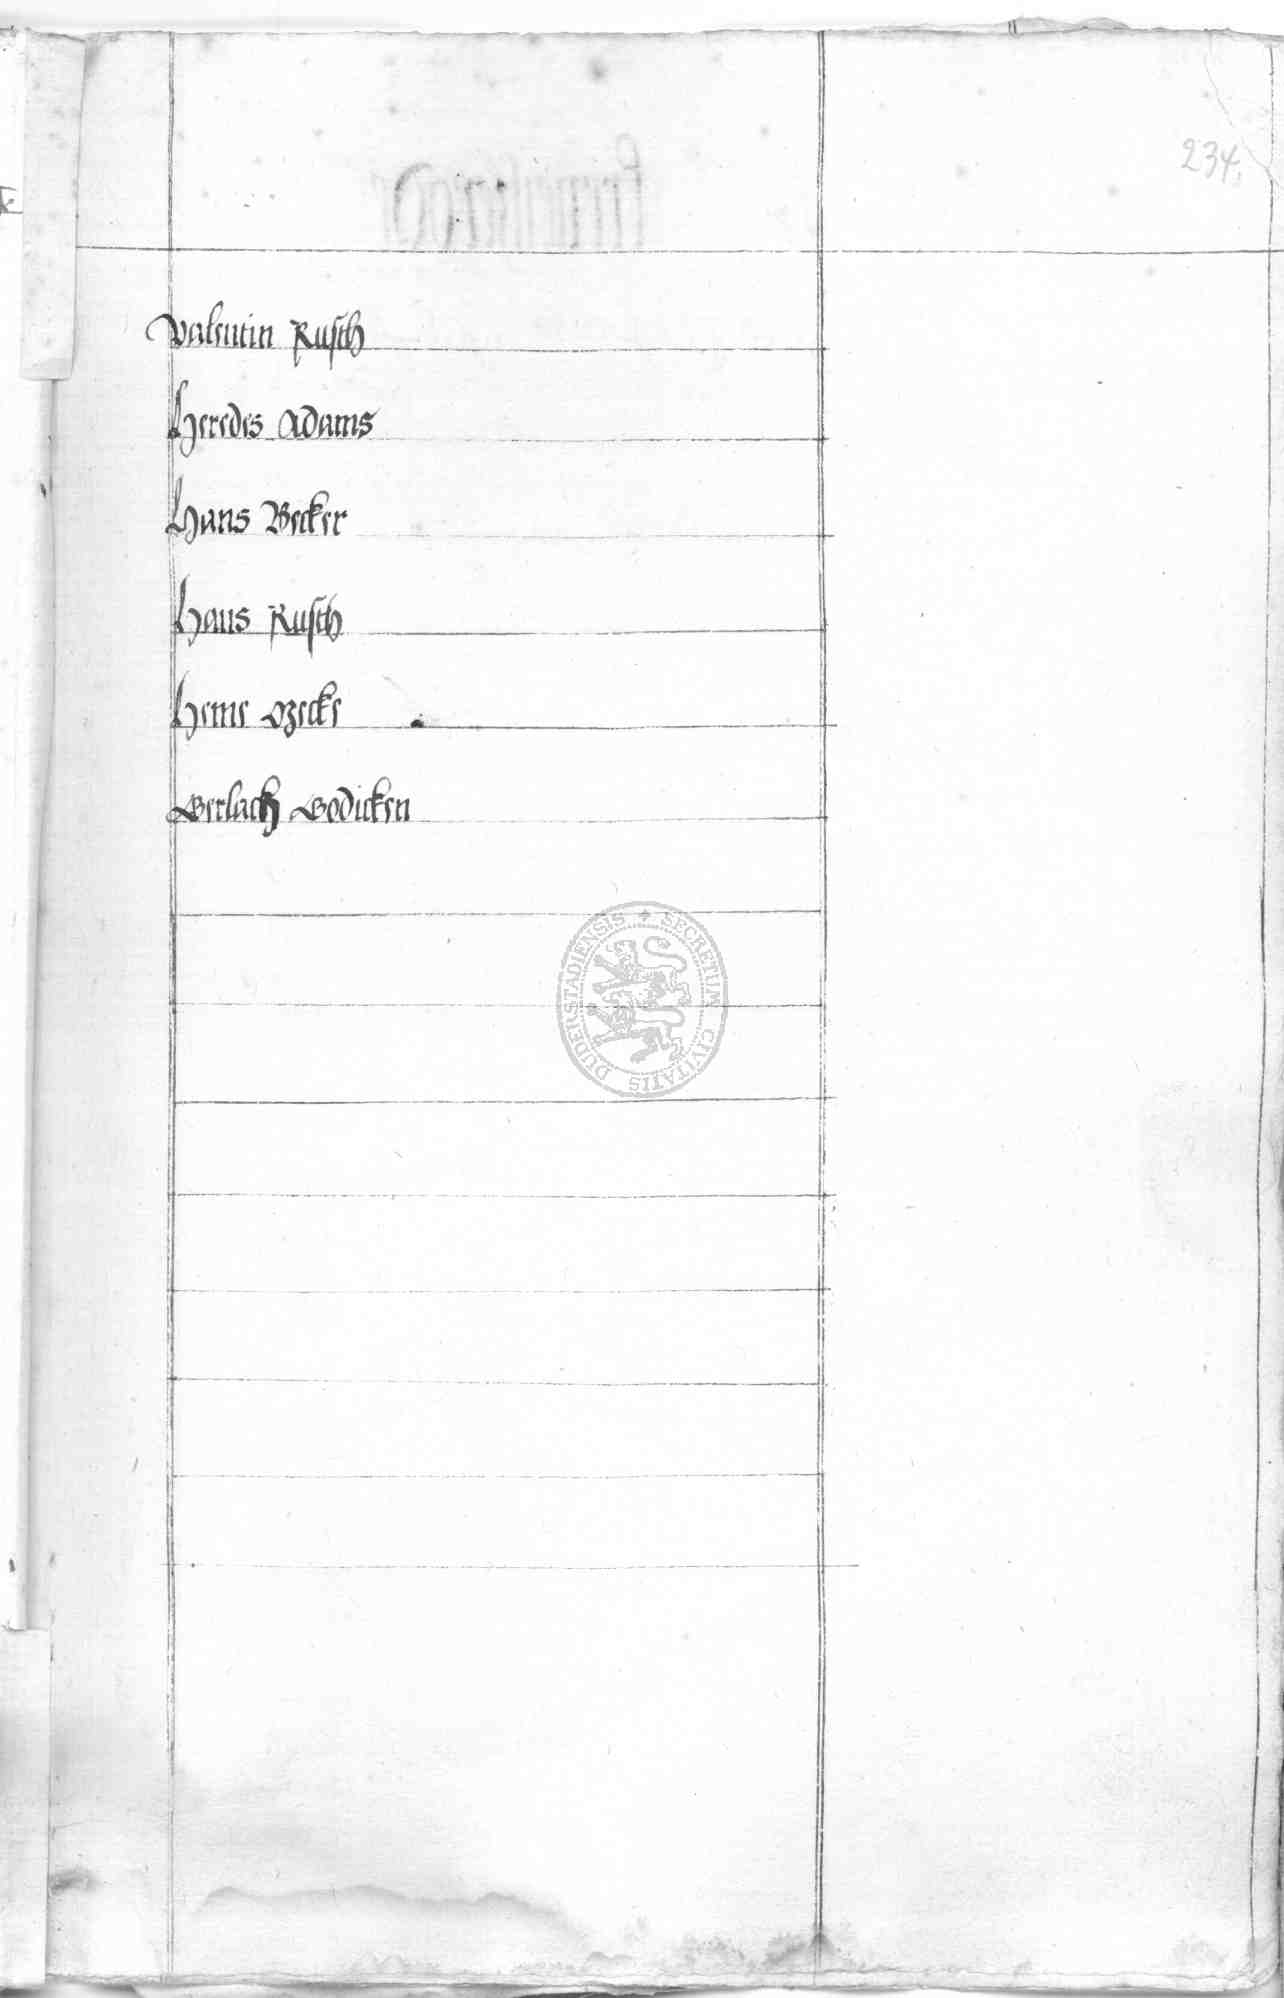 234
Valentin Rusch
Heredes Adams
Hans Becker
Hans Rusch
Heine
Gerlach Godicken
SECRETUM CIVITATIS DUDERSTADIENSIS